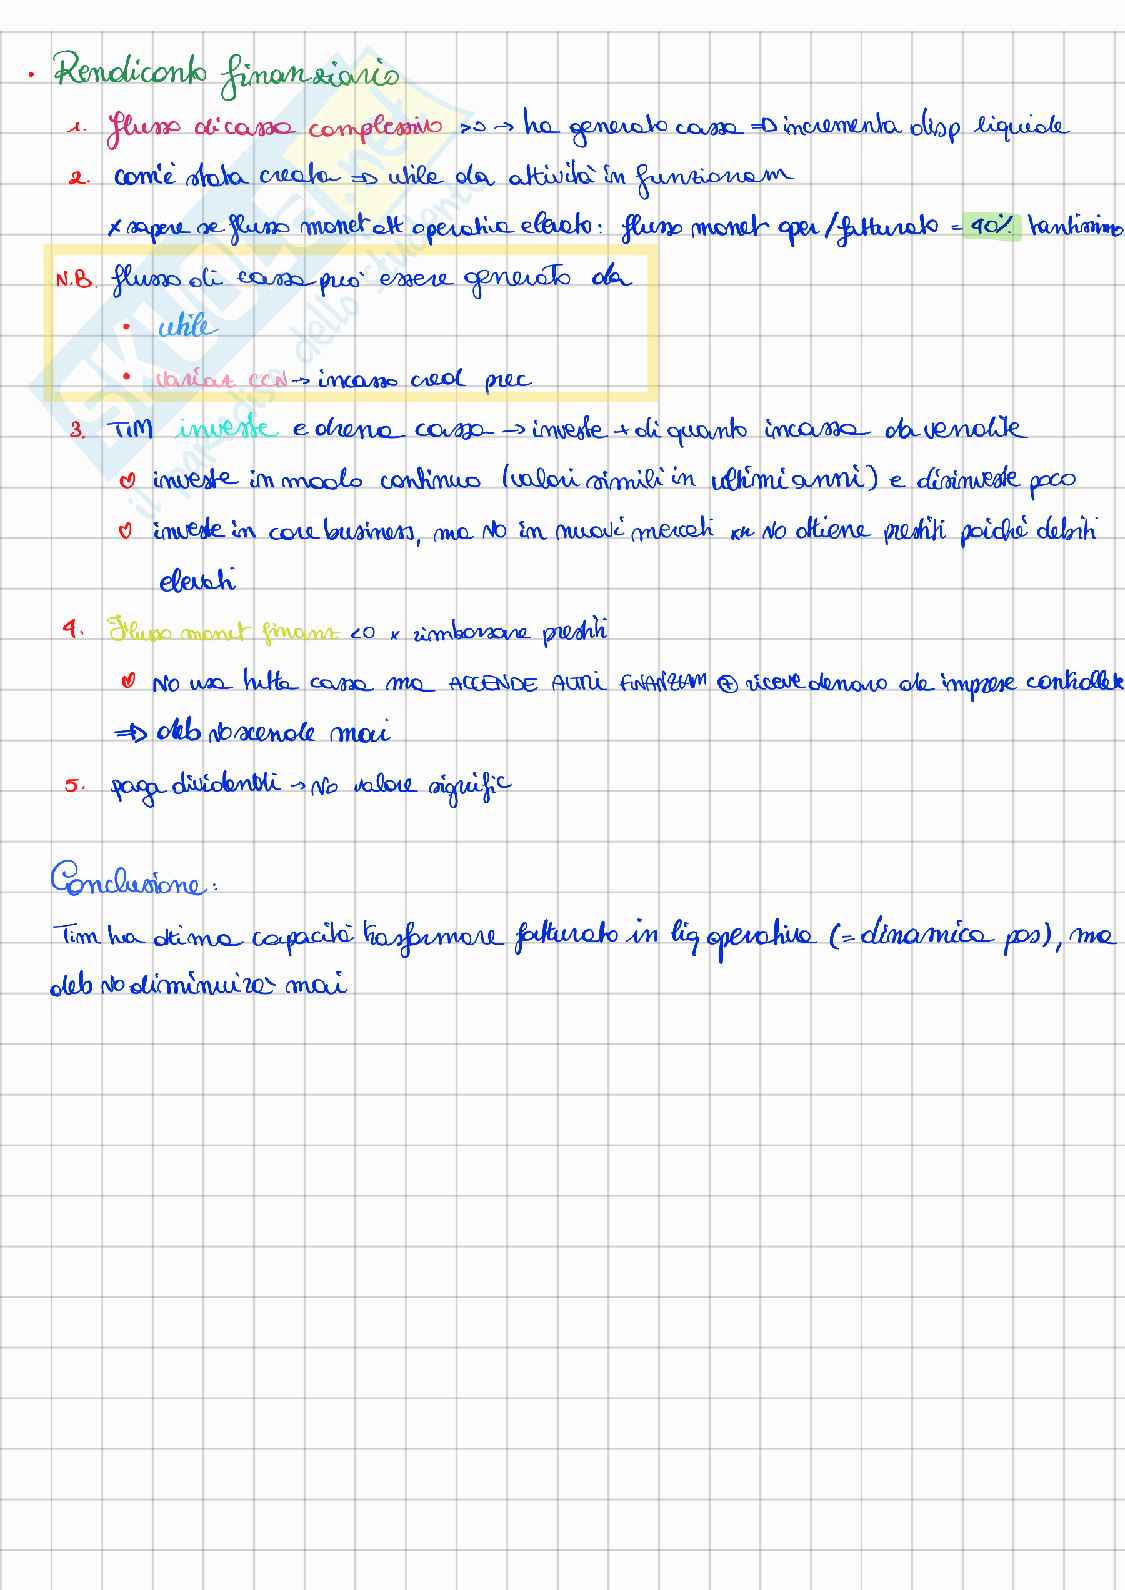 • Rendiconto finanziario
1. flusso di cassa complessivo >0 → ha generato cassa ⇒ incrementa disp liquide
2. com'è stata creata ⇒ utile da attività in funzionam
x sapere se flusso monet att operativa elevato: flusso monet oper/fatturato = 40% tantissimo
N.B. flusso di cassa può essere generato da
• utile
• variaz CCN → incasso cred prec
3. TIM investe e drena cassa → investe + di quanto incassa da vendite
investe in modo continuo (valori simili in ultimi anni) e disinveste poco
investe in core business, ma NO in nuovi mercati xk NO ottiene prestiti poiché debiti
elevati
4. Flusso monet finanz <0 x rimborsare prestiti
NO usa tutta cassa ma ACCENDE ALTRI FINANZIAM ⊕ riceve denaro da imprese controllate
⇒ deb NO scende mai
5. paga dividendi → NO valore signific
Conclusione:
Tim ha ottima capacità trasformare fatturato in liq operativa (= dinamica pos), ma
deb NO diminuirà mai
SKUOLA.net
il paradiso dello studente